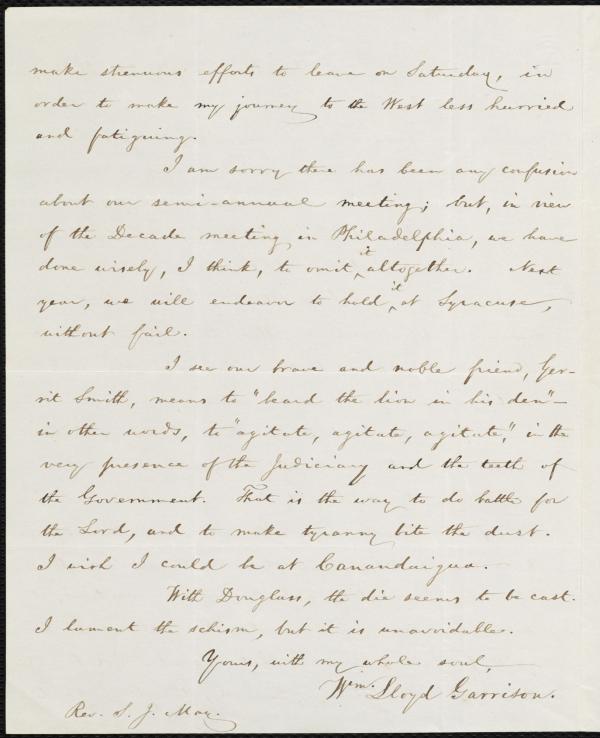 make strenuous efforts to leave on Saturday, in
order to make my journey to the West less hurried
and fatiguing.
I am sorry there has been any confusion
about our semi-annual meeting; but, in view
of the Decade meeting in Philadelphia, we have
done wisely, I think, to omit it altogether. Next
year, we will endeavor to hold it at Syracuse,
without fail.
I see our brave and noble friend, Ger-
rit Smith, means to "beard the lion in his den"—
in other words, to "agitate, agitate, agitate," in the
very presence of the Judiciary and the teeth of
the Government. That is the way to do battle for
the Lord, and to make tyranny bite the dust.
I wish I could be at Canandaigua.
With Douglass, the die seems to be cast.
I lament the schism, but it is unavoidable.
Yours, with my whole soul,
Wm. Lloyd Garrison.
Rev. S. J. May.